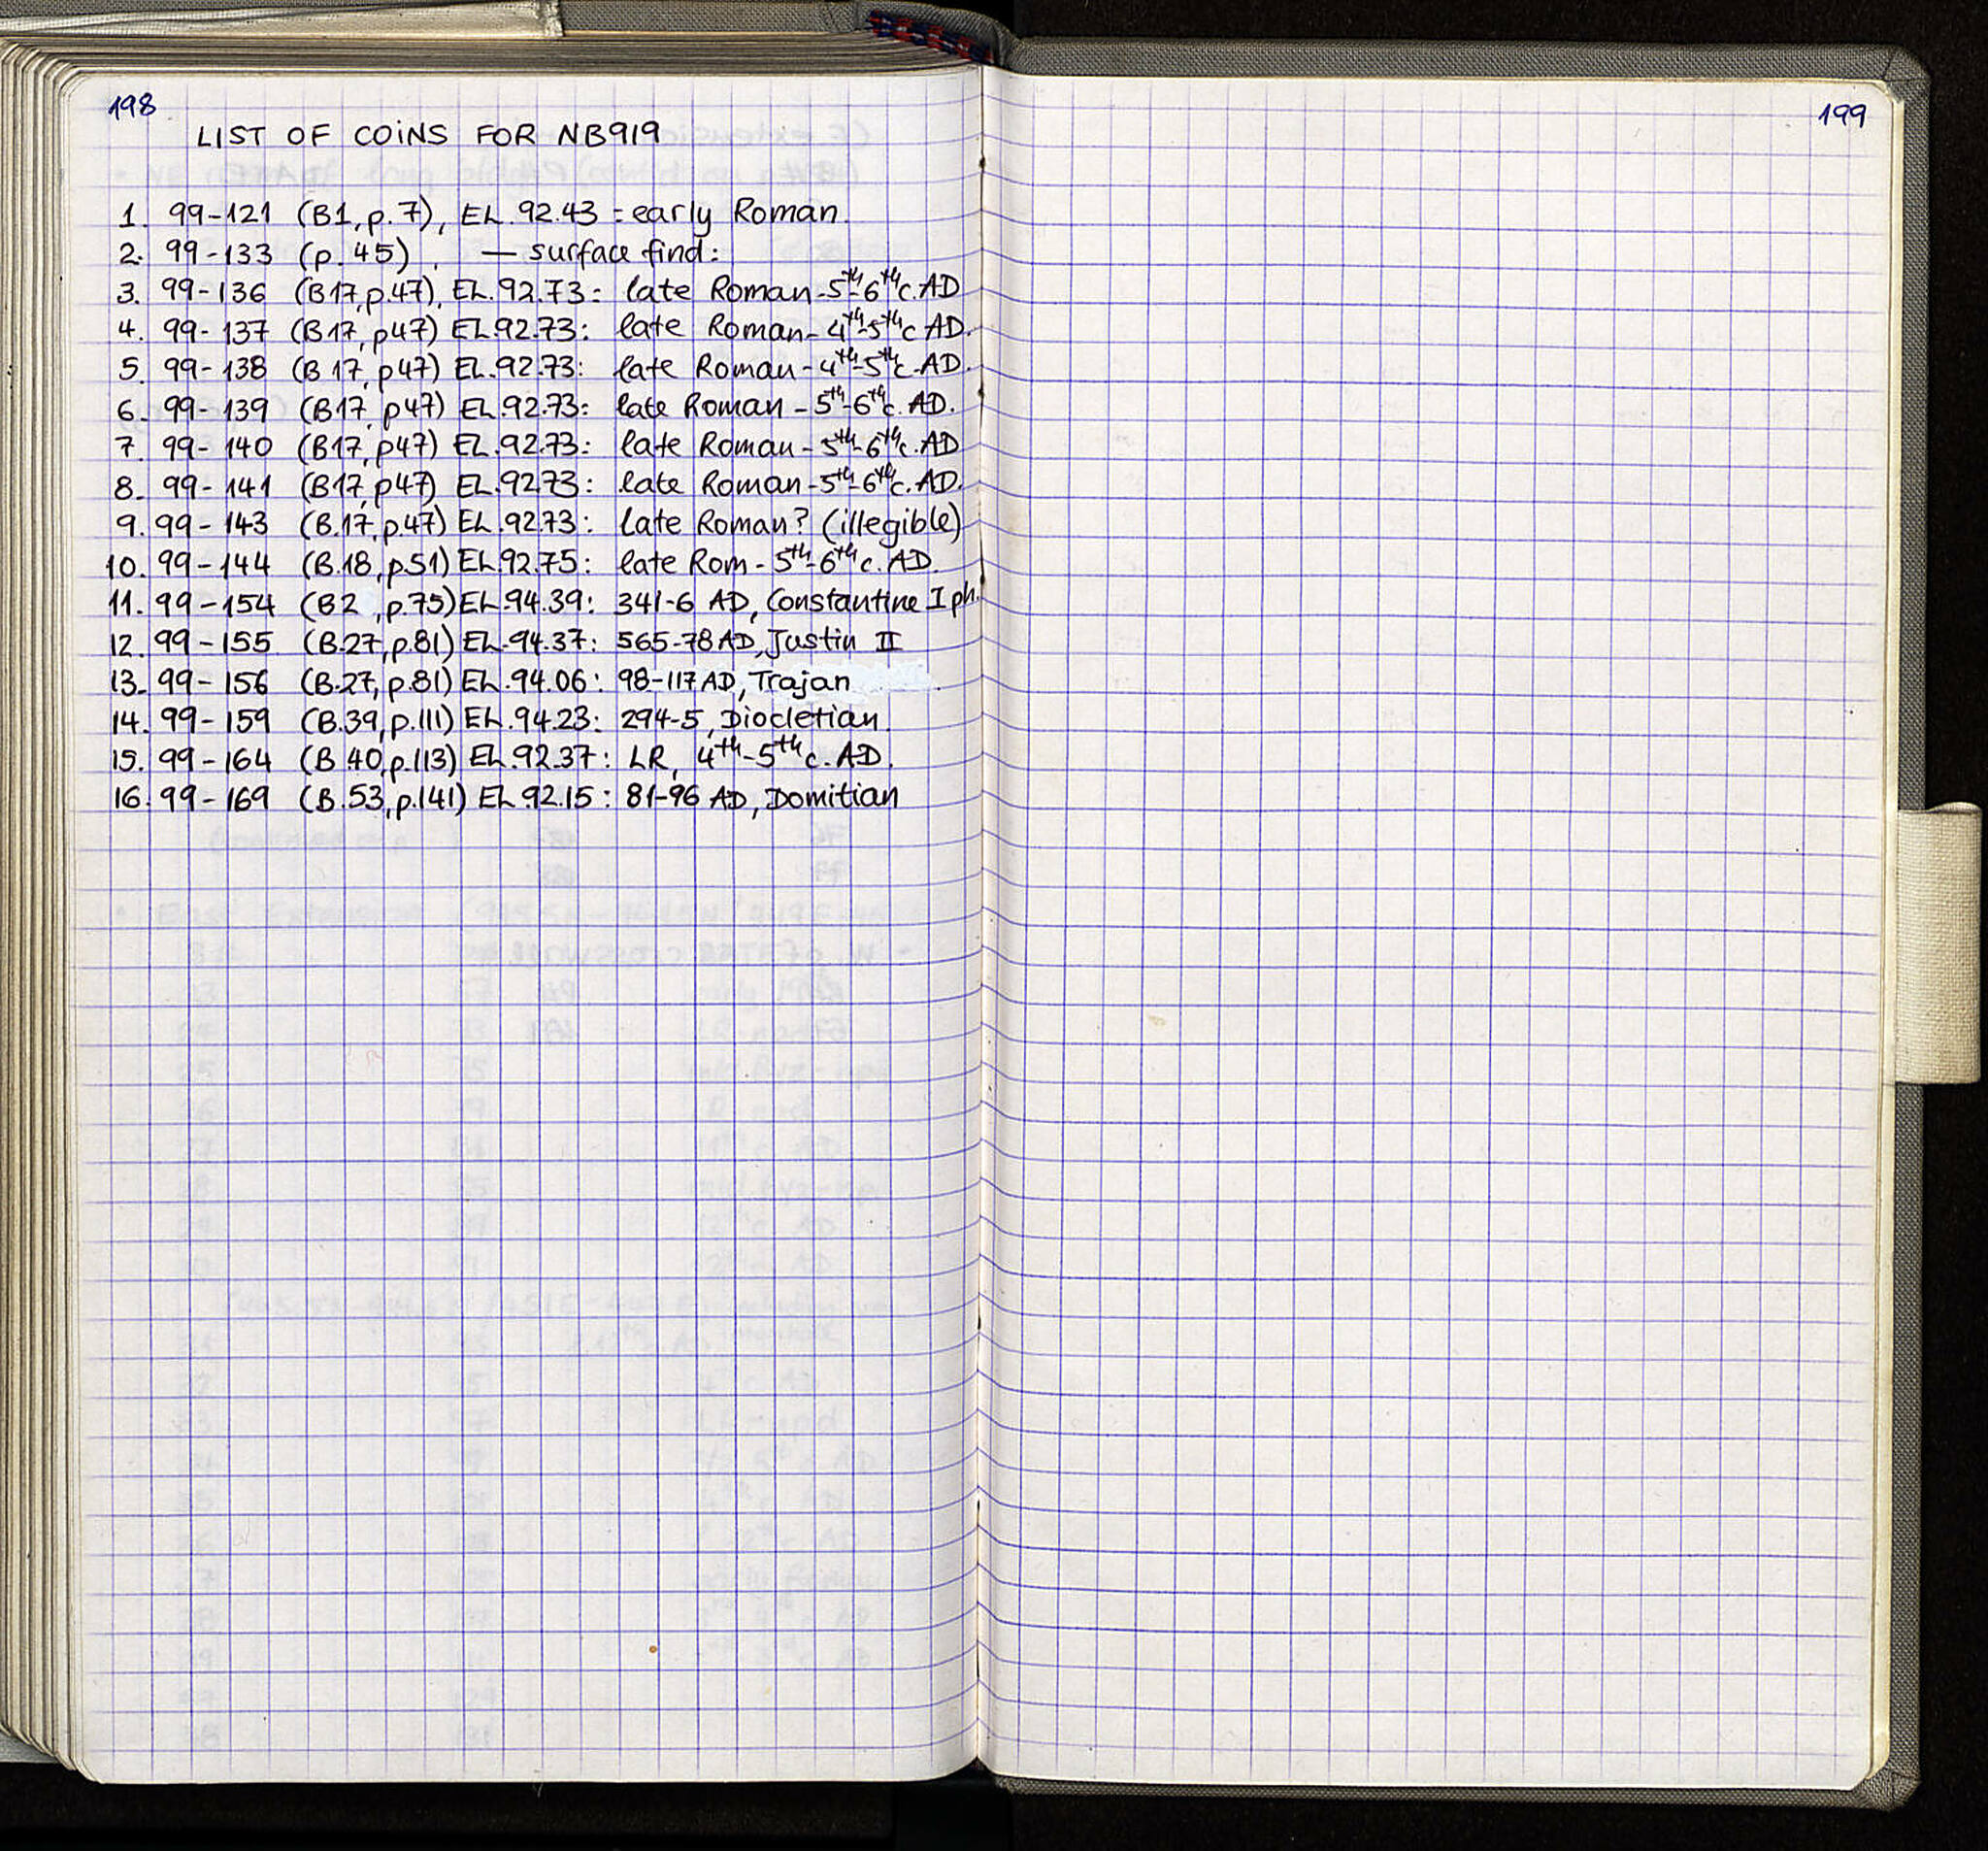 198
LIST OF COINS FOR NB919
1. 99-121 (B1, p. 7), EL. 92.43 = early Roman.
2. 99-133 (p. 45). — surface find:
3. 99-136 (B17, p.47), EL. 92.73: late Roman - 5th-6th c. AD
4. 99-137 (B17, p47) EL 92.73: late Roman - 4th-5th c AD.
5. 99-138 (B 17, p47) EL. 92.73: late Roman - 4th-5th c. AD.
6. 99-139 (B17, p47) EL. 92.73: late Roman - 5th-6th c. AD.
7. 99-140 (B17, p47) EL. 92.73: late Roman - 5th-6th c. AD
8. 99-141 (B17, p47) EL. 92.73: late Roman - 5th-6th c. AD.
9. 99-143 (B.17, p.47) EL. 92.73: late Roman? (illegible)
10. 99-144 (B.18, p51) EL. 92.75: late Rom - 5th-6th c. AD.
11. 99-154 (B2 , p.75) EL. 94.39: 341-6 AD, Constantine I ph.
12. 99-155 (B.27, p.81) EL. 94.37: 565-78 AD, Justin II
13. 99-156 (B.27, p.81) EL. 94.06: 98-117 AD, Trajan
14. 99-159 (B.39, p.111) EL. 94.23: 294-5, Diocletian.
15. 99-164 (B 40, p.113) EL. 92.37: LR, 4th-5th c. AD.
16. 99-169 (B.53, p.141) EL 92.15: 81-96 AD, Domitian
199